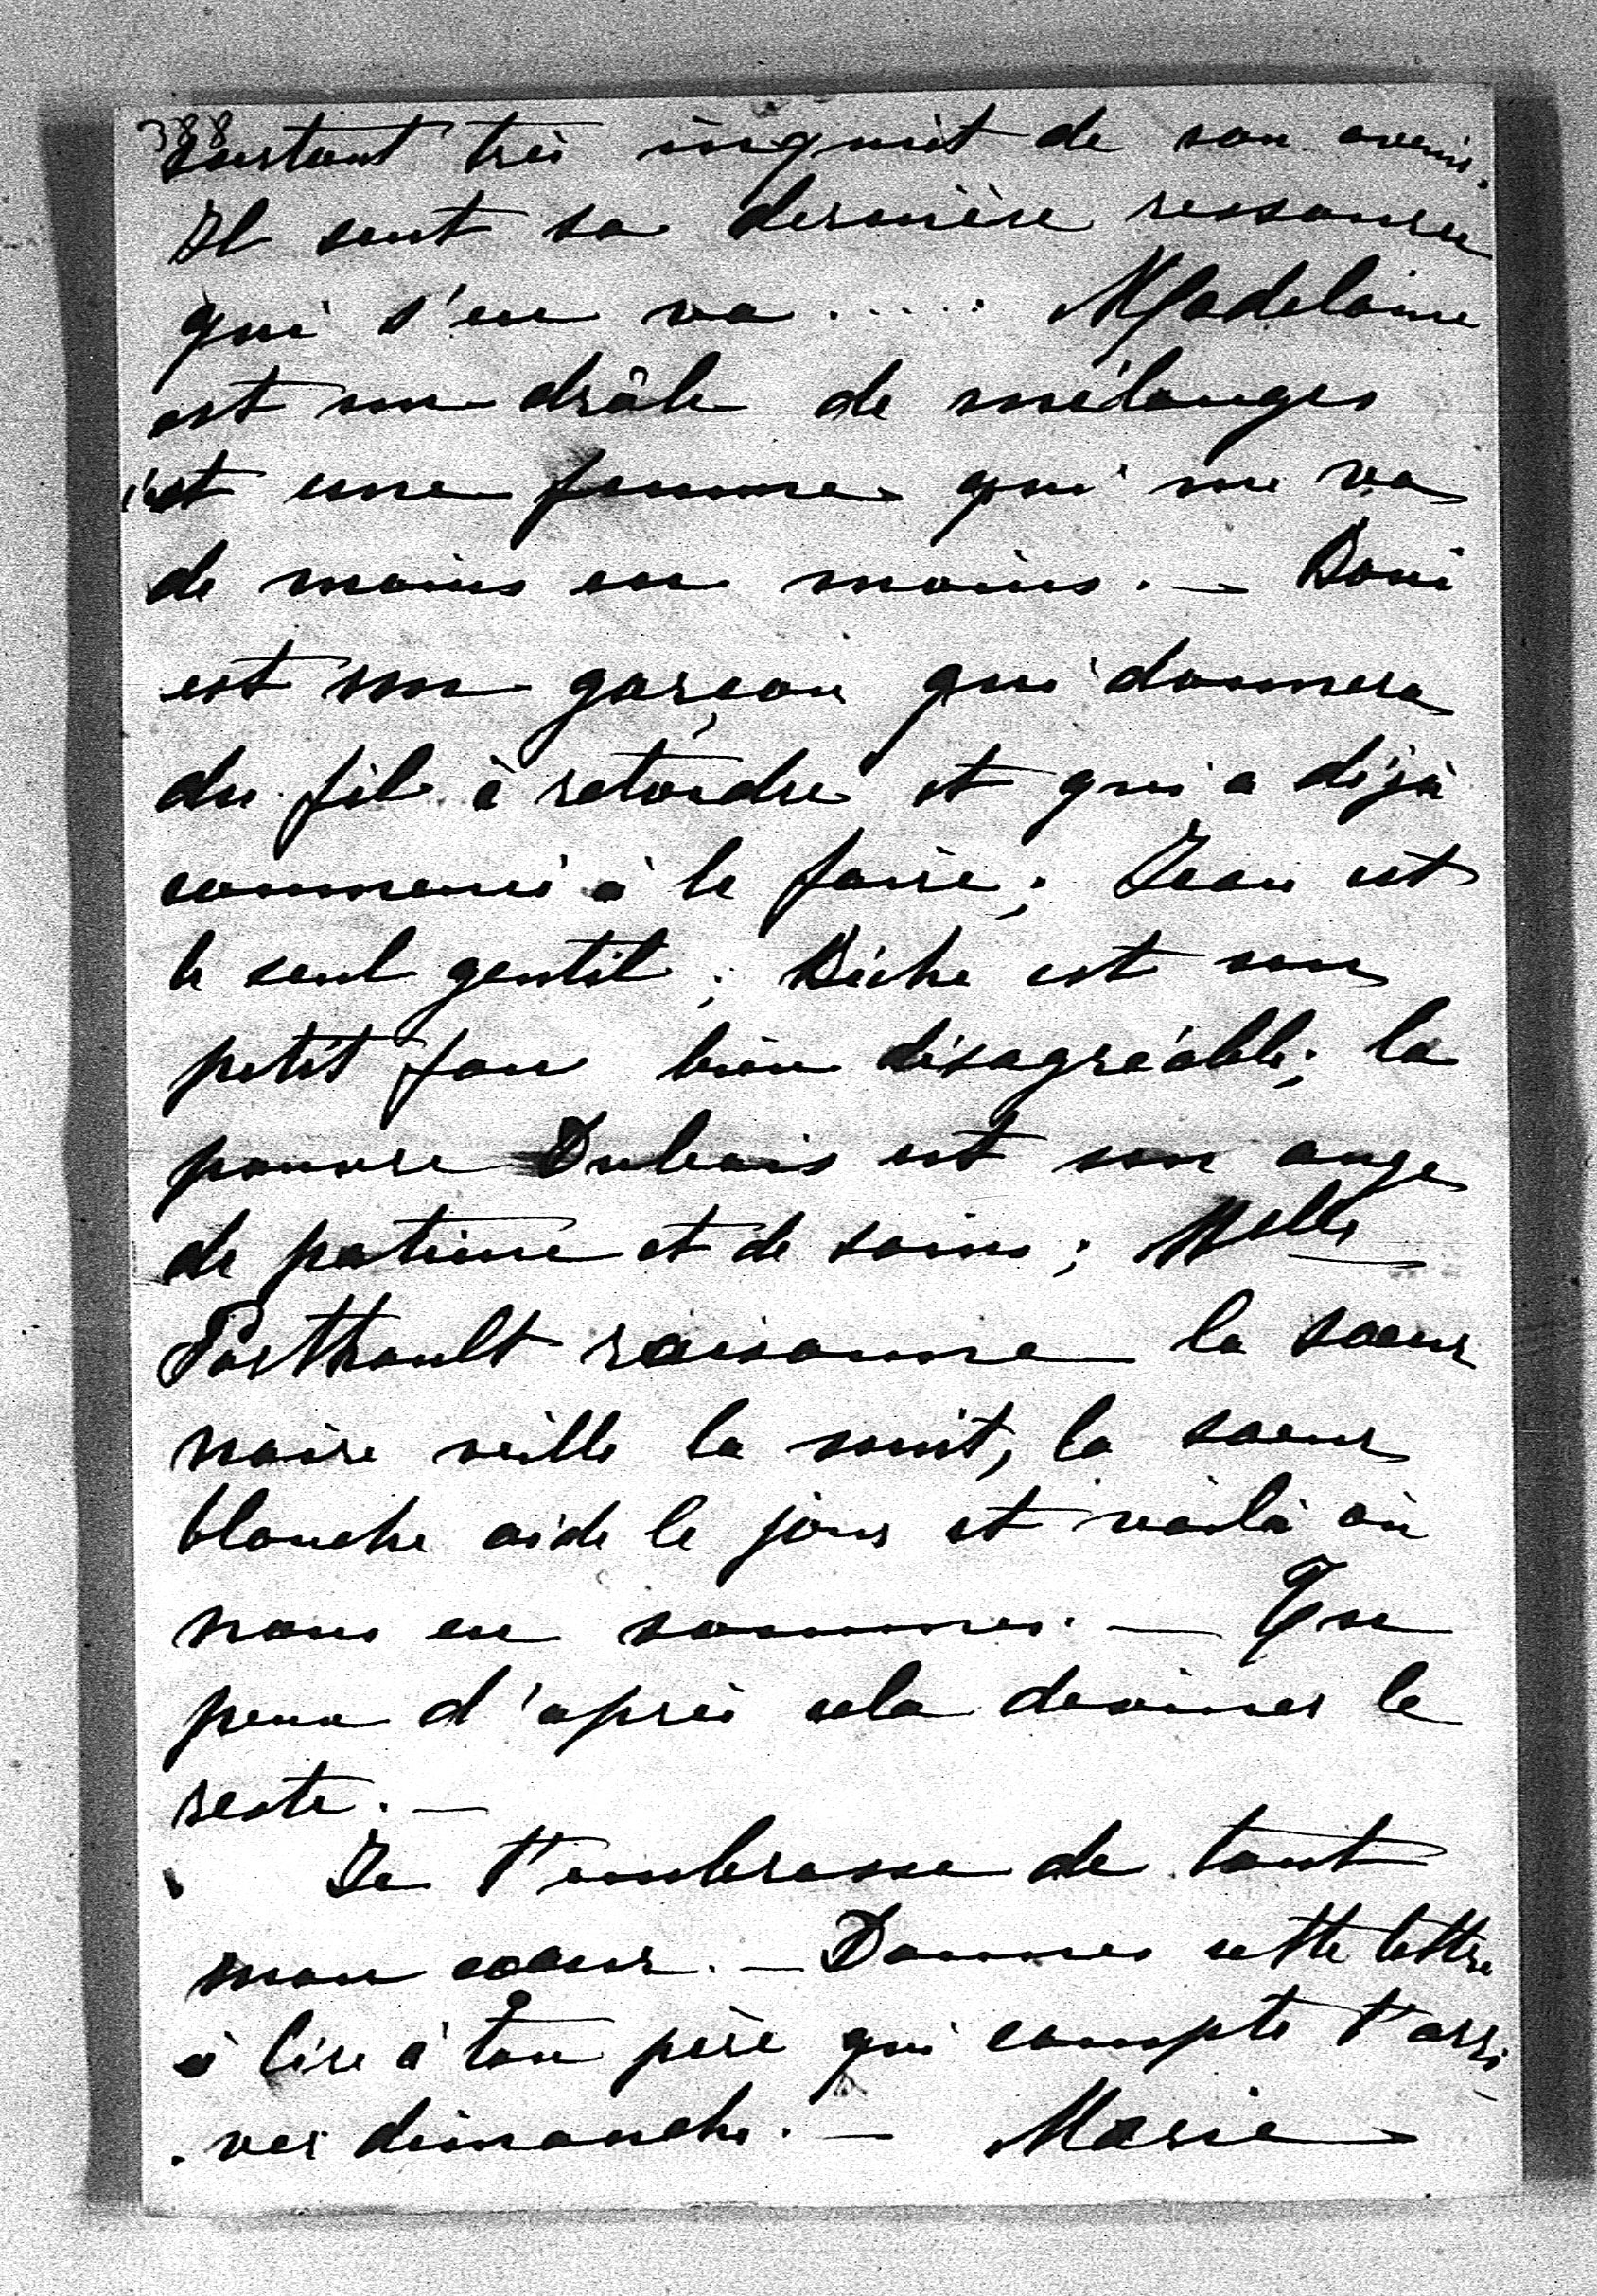 388
surtout très inquiet de son avenir.
Il sent sa dernière ressource
qui s'en va ..... Madelaine
est un drôle de mélanges
c'est une femme qui me va
de moins en moins. — Doui
est un garçon qui donnera
du fil à retordre et qui a déjà
commencé à le faire ; Jean est
le seul gentil ; Biche est un
petit fou bien désagréable ; la
pauvre Dubois est un ange
de patience et de soins ; Melle
Parthault raisonne la soeur
noire veille la nuit, la soeur
blanche aide le jour et voilà où
nous en sommes. — Tu
peux d'après cela deviner le
reste. —
Je t'embrasse de tout
mon coeur. — Donnes cette lettre
à lire à ton père qui compte t'arri
-ver dimanche. — Marie